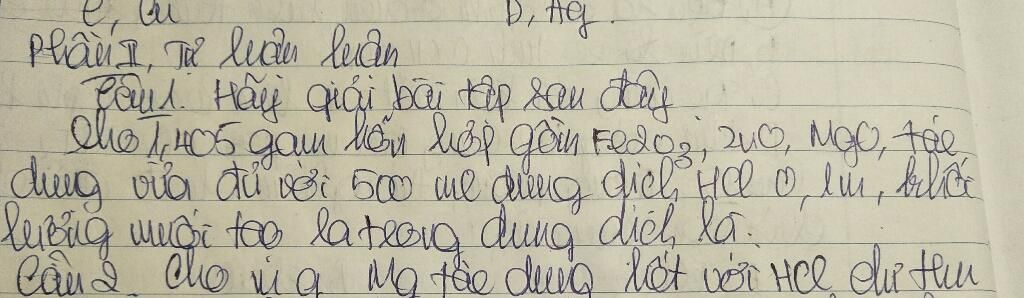 C, Cu D, Ag.
Phần II, Tự luân luân
Câu 1. Hãy giải bài tập sau đây
Cho 1,405 gam hỗn hợp gồm Fe2O3, ZnO, MgO, tác
dung vừa đủ với 500 ml dung dịch HCl 0,1M, khối
lượng muối tạo ra trong dung dịch là.
Câu 2. Cho g Mg tác dung hết với HCl dư thu